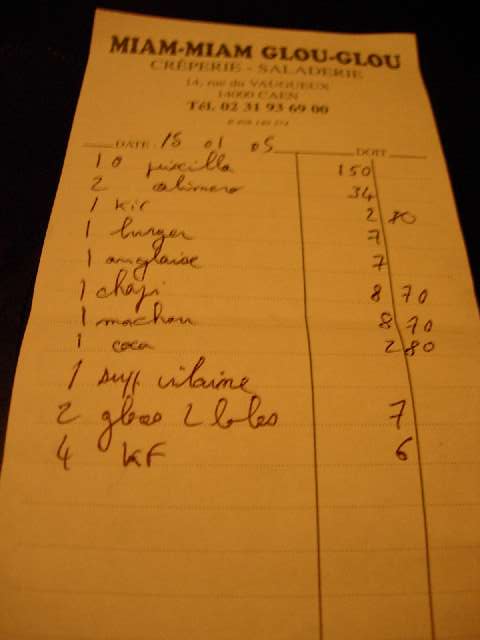 MIAM-MIAM GLOU-GLOU
CRÊPERIE - SALADERIE
14, rue du VAUGUEUX
14000 CAEN
Tél. 02 31 93 69 00
DATE : 15 01 05 DOIT
10 priscilla 150
2 34
1 kir 2 80
1 burger 7
1 anglaise 7
1 8 70
1 machon 8 70
1 coca 2 80
1 supp vilaine
2 glace 2 boules 7
4 KF 6